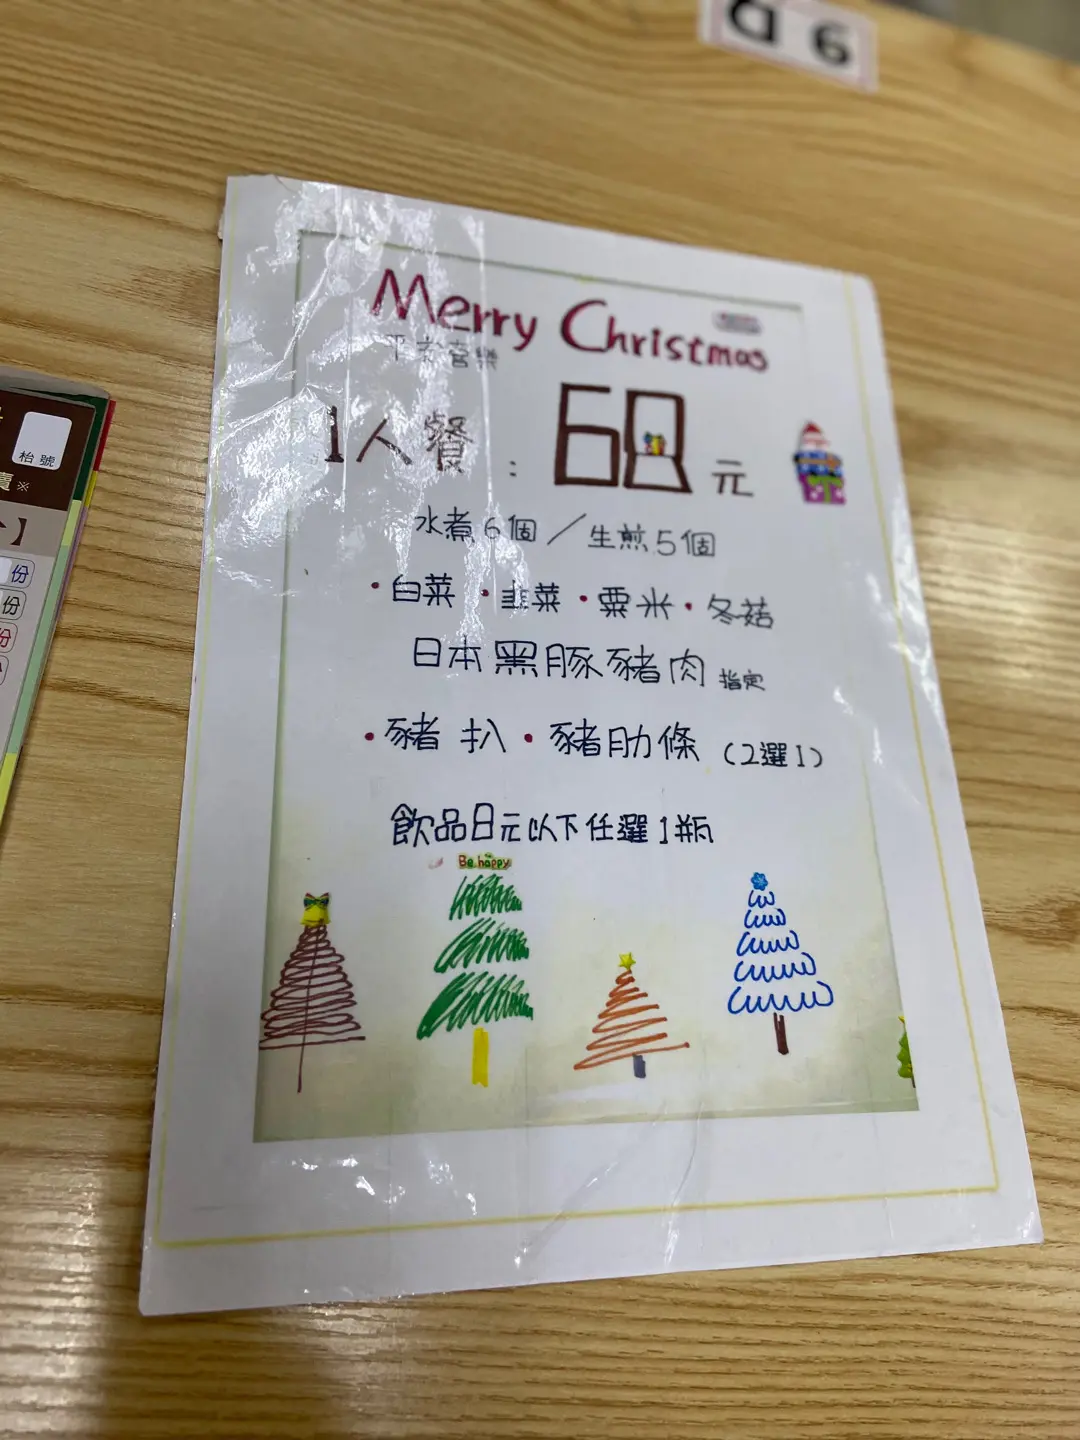 Q 6
Merry Christmas
平安喜樂
1人餐：68元
水煮6個／生煎5個
・白菜・韭菜・粟米・冬菇
日本黑豚豬肉 指定
・豬扒・豬肋條（2選1）
飲品8元以下任選1瓶
Be happy
枱號
賣※
】
份
份
份